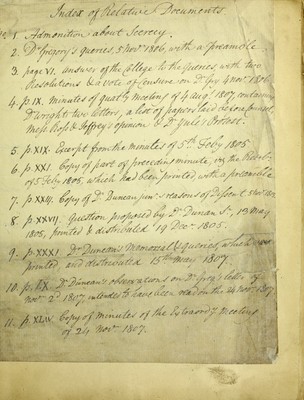 Index of Relative Documents.
1. Admonition about Secrecy.
2. Dr Gregory's queries, 5 Novr 1806, with a preamble
3. page VI. Answer of the College to the queries, with two
Resolutions & a vote of Censure on Dr Gr 4 Novr 1806.
4. p. IX. Minutes of quarty meeting of 4 Augt 1807, containing
Dr Wright's two letters, a list of papers laid before counsel,
Messrs Ross & Jeffrey's opinion & Dr Yule's Protest.
5. p. XIX. Excerpt from the minutes of 5th Feby 1805
6. p. XXI. Copy of part of preceding minute, viz the Report
of 5 Feby 1805, which had been printed with a preamble
7. p. XXIII. Copy of Dr Duncan junr's reasons of Dissent 5
8. p. XXVII. Question proposed by Dr Duncan Sr, 13 May
1805, printed & distributed 19 Decr 1805.
9. p. XXXI Dr Duncan's Memorial & queries, which were
printed and distributed 15th May 1807.
10. p. Dr Duncan's observations on Dr Greg's letter of
Novr 2d 1807, intended to have been read on the 24 Novr 1807
11. p. XLIV Copy of minutes of the Extraordy meeting
of 24 Novr 1807.